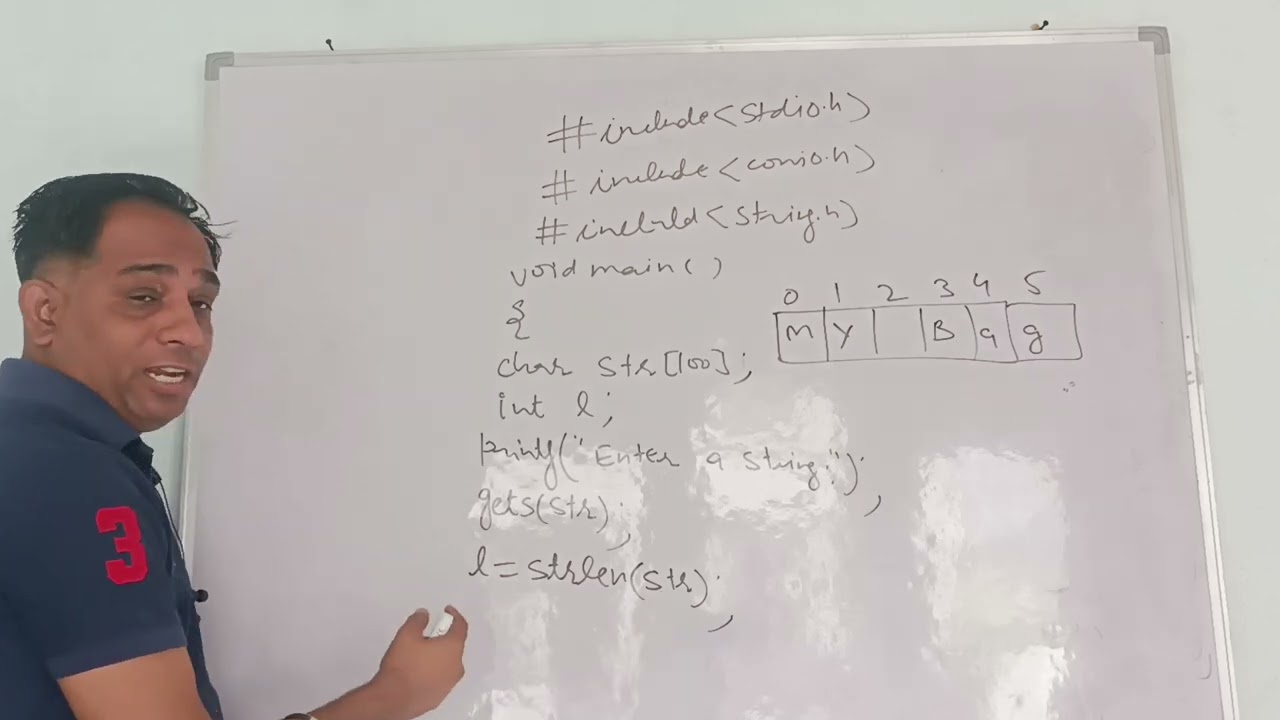 #include<stdio.h>
#include<conio.h>
#incluld<string.h>
void main( )
{
0 1 2 3 4 5
M Y B a g
char str[100];
int l;
printf("Enter a string:");
gets(str);
l=strlen(str);
3